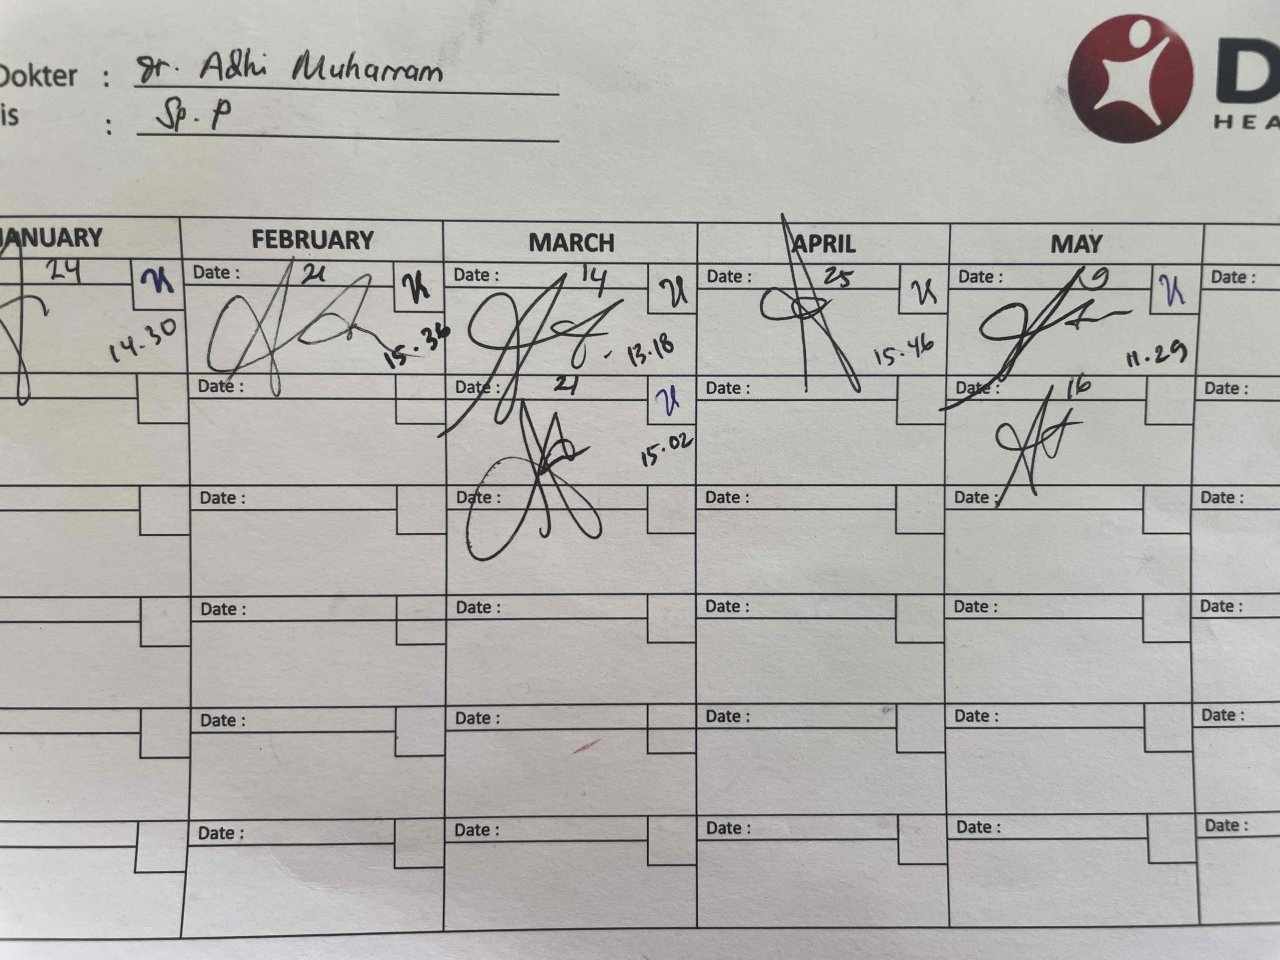 Dokter : dr. Adhi Muharram
is : Sp. P
D
HEA
JANUARY FEBRUARY MARCH APRIL MAY
24 Date : 21 Date : 14 Date : 25 Date : 9 Date :
14.30 15.36 13.18 15.46 11.29
Date : Date : 21 Date : Date : 16 Date :
15.02
Date : Date : Date : Date : Date :
Date : Date : Date : Date : Date :
Date : Date : Date : Date : Date :
Date : Date : Date : Date : Date :